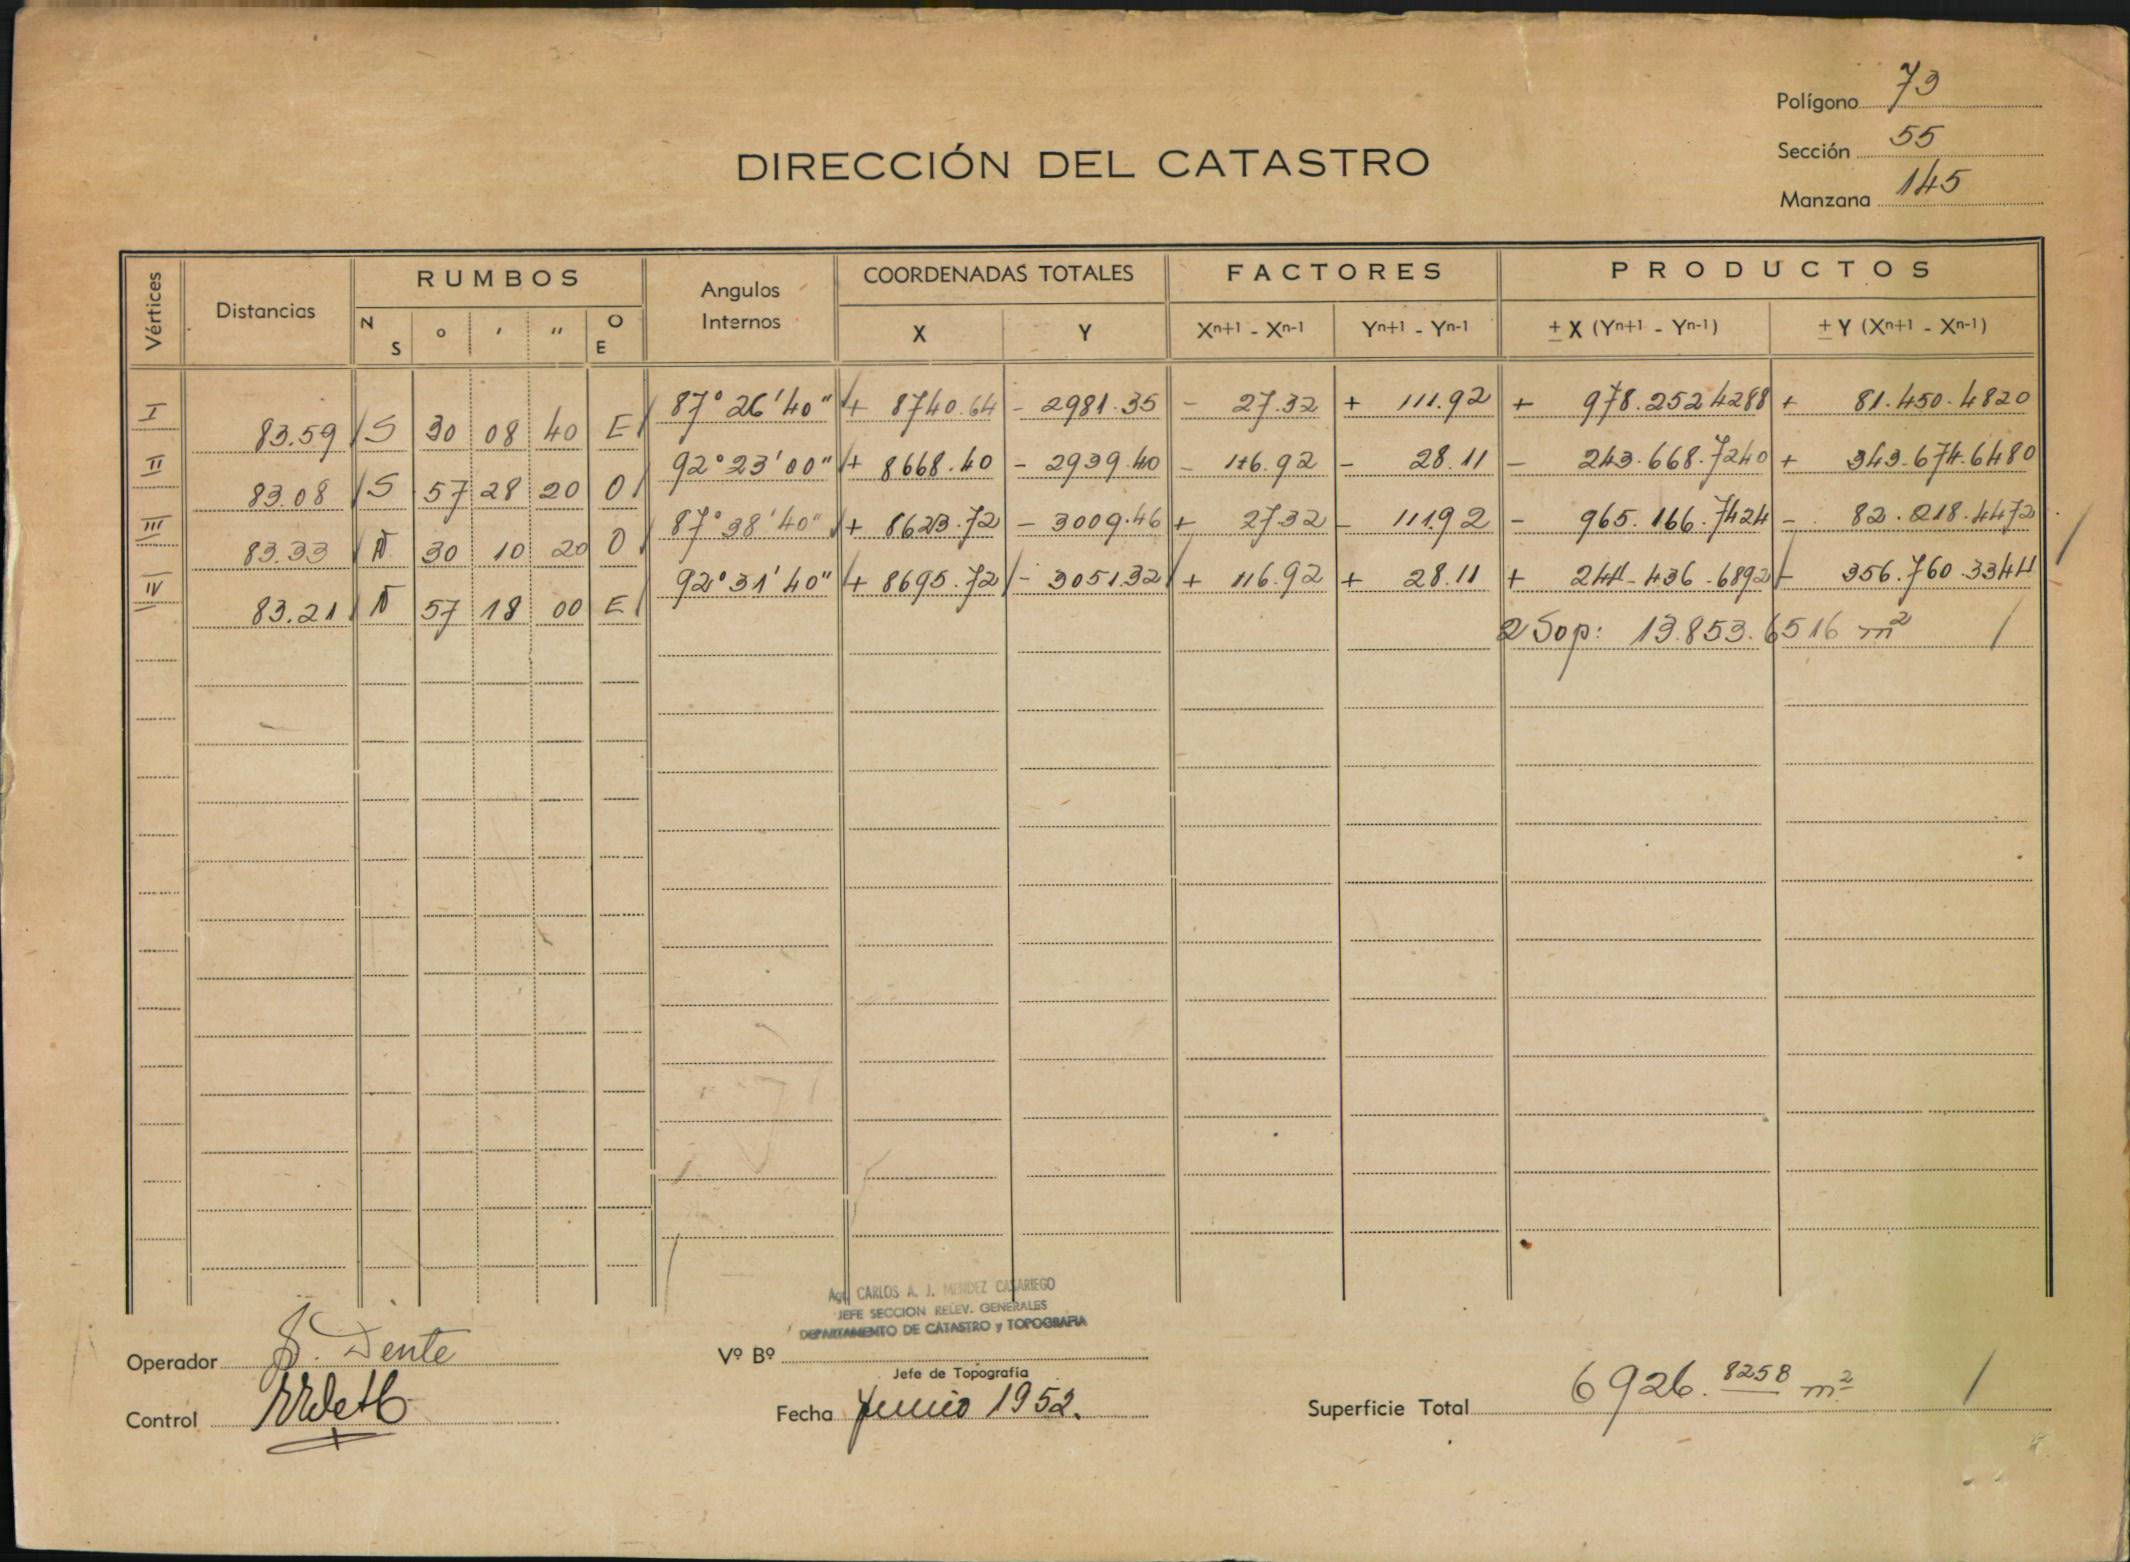 Polígono 73
Sección 55
Manzana 145
DIRECCIÓN DEL CATASTRO
Vértices Distancias RUMBOS Angulos Internos COORDENADAS TOTALES FACTORES PRODUCTOS
N S ° ' " O E X Y Xn+1 - Xn-1 Yn+1 - Yn-1 ± X (Yn+1 - Yn-1) ± Y (Xn+1 - Xn-1)
I 87° 26' 40" + 8740.64 - 2981.35 - 27.32 + 111.92 + 978.252.4288 + 81.450.4820
83.59 S 30 08 40 E
II 92° 23' 00" + 8668.40 - 2939.40 - 116.92 - 28.11 - 243.668.7240 + 343.674.6480
83.08 S 57 28 20 O
III 87° 38' 40" + 8623.72 - 3009.46 + 27.32 - 111.92 - 965.166.7424 - 82.218.4472
83.33 N 30 10 20 O
IV 92° 31' 40" + 8695.72 - 3051.32 + 116.92 + 28.11 + 244.436.6892 - 356.760.3344
83.21 N 57 18 00 E
2 Sop: 13.853.6516 m²
Agr. CARLOS A. J. MENDEZ CASARIEGO
JEFE SECCION RELEV. GENERALES
DEPARTAMENTO DE CATASTRO y TOPOGRAFIA
Operador Dente
Vº Bº
Jefe de Topografía
Control
Fecha Junio 1952.
Superficie Total 6926.8258 m²